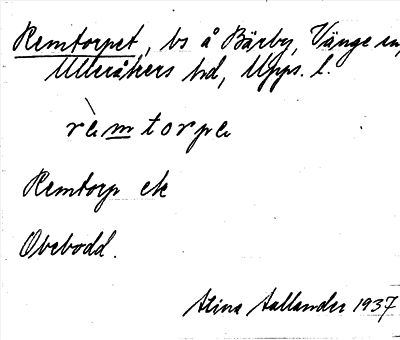 Remtorpet, bs å Bärby, Vänge sn,
Ulleråkers hd, Upps. l.
rèmtorpe
Remtorp ek
Obebodd.
Stina Aallander 1937